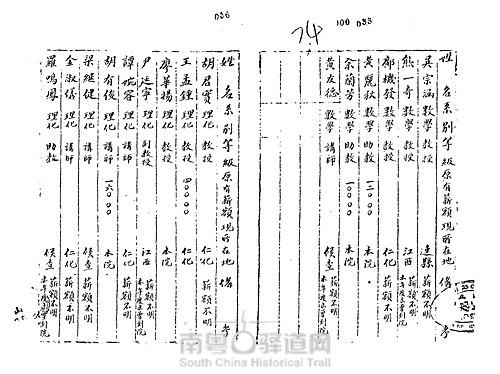 036
100 035
姓名 系别 等級 原有薪額 現所在地 備考
吴宗涵 數學 教授 連縣 薪額不明
熊一奇 數學 教授 江西 薪額不明
鄺機發 數學 教授 仁化 薪額不明
黄麗秋 數學 助教 一二〇〇〇 本院
余蘭芳 數學 助教 一〇〇〇〇 本院
黄友德 數學 講師 候查
姓名 系别 等級 原有薪額 現所在地 備考
胡君實 理化 教授 仁化 薪額不明
王孟鍾 理化 教授 四〇〇〇〇 仁化
廖華揚 理化 教授 本院
尹廷寧 理化 副教授 江西
譚 容 理化 講師 仁化 薪額不明
胡有俊 理化 講師 一六〇〇〇 本院
梁繼健 理化 講師 候查 薪額不明
金淑儀 理化 講師 仁化 薪額不明
羅鳴鳳 理化 助教 候查
南粤驿道网
South China Historical Trail